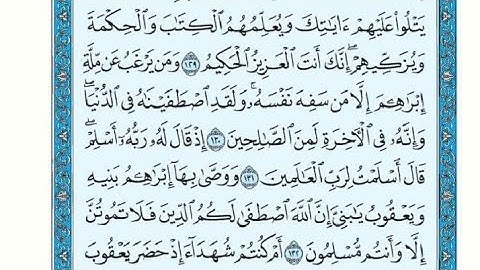 يَتْلُوا۟ عَلَيْهِمْ ءَايَٰتِكَ وَيُعَلِّمُهُمُ ٱلْكِتَٰبَ وَٱلْحِكْمَةَ
وَيُزَكِّيهِمْ ۚ إِنَّكَ أَنتَ ٱلْعَزِيزُ ٱلْحَكِيمُ ١٢٩ وَمَن يَرْغَبُ عَن مِّلَّةِ
إِبْرَٰهِـۧمَ إِلَّا مَن سَفِهَ نَفْسَهُۥ ۚ وَلَقَدِ ٱصْطَفَيْنَٰهُ فِى ٱلدُّنْيَا ۖ
وَإِنَّهُۥ فِى ٱلْءَاخِرَةِ لَمِنَ ٱلصَّٰلِحِينَ ١٣٠ إِذْ قَالَ لَهُۥ رَبُّهُۥٓ أَسْلِمْ ۖ
قَالَ أَسْلَمْتُ لِرَبِّ ٱلْعَٰلَمِينَ ١٣١ وَوَصَّىٰ بِهَآ إِبْرَٰهِـۧمُ بَنِيهِ
وَيَعْقُوبُ يَٰبَنِىَّ إِنَّ ٱللَّهَ ٱصْطَفَىٰ لَكُمُ ٱلدِّينَ فَلَا تَمُوتُنَّ
إِلَّا وَأَنتُم مُّسْلِمُونَ ١٣٢ أَمْ كُنتُمْ شُهَدَآءَ إِذْ حَضَرَ يَعْقُوبَ